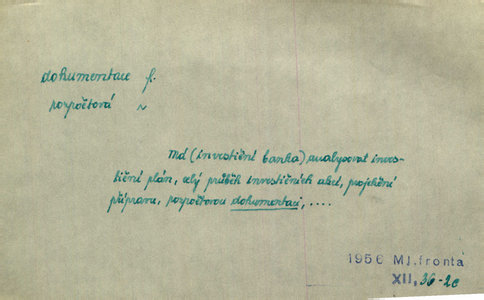 dokumentace f.
rozpočtová ~
Má (investiční banka) analysovat inves-
tiční plán, celý průběh investičních akcí, projekční
přípravu, rozpočtovou dokumentaci, ....
1956 Ml.fronta
XII, 36-2c